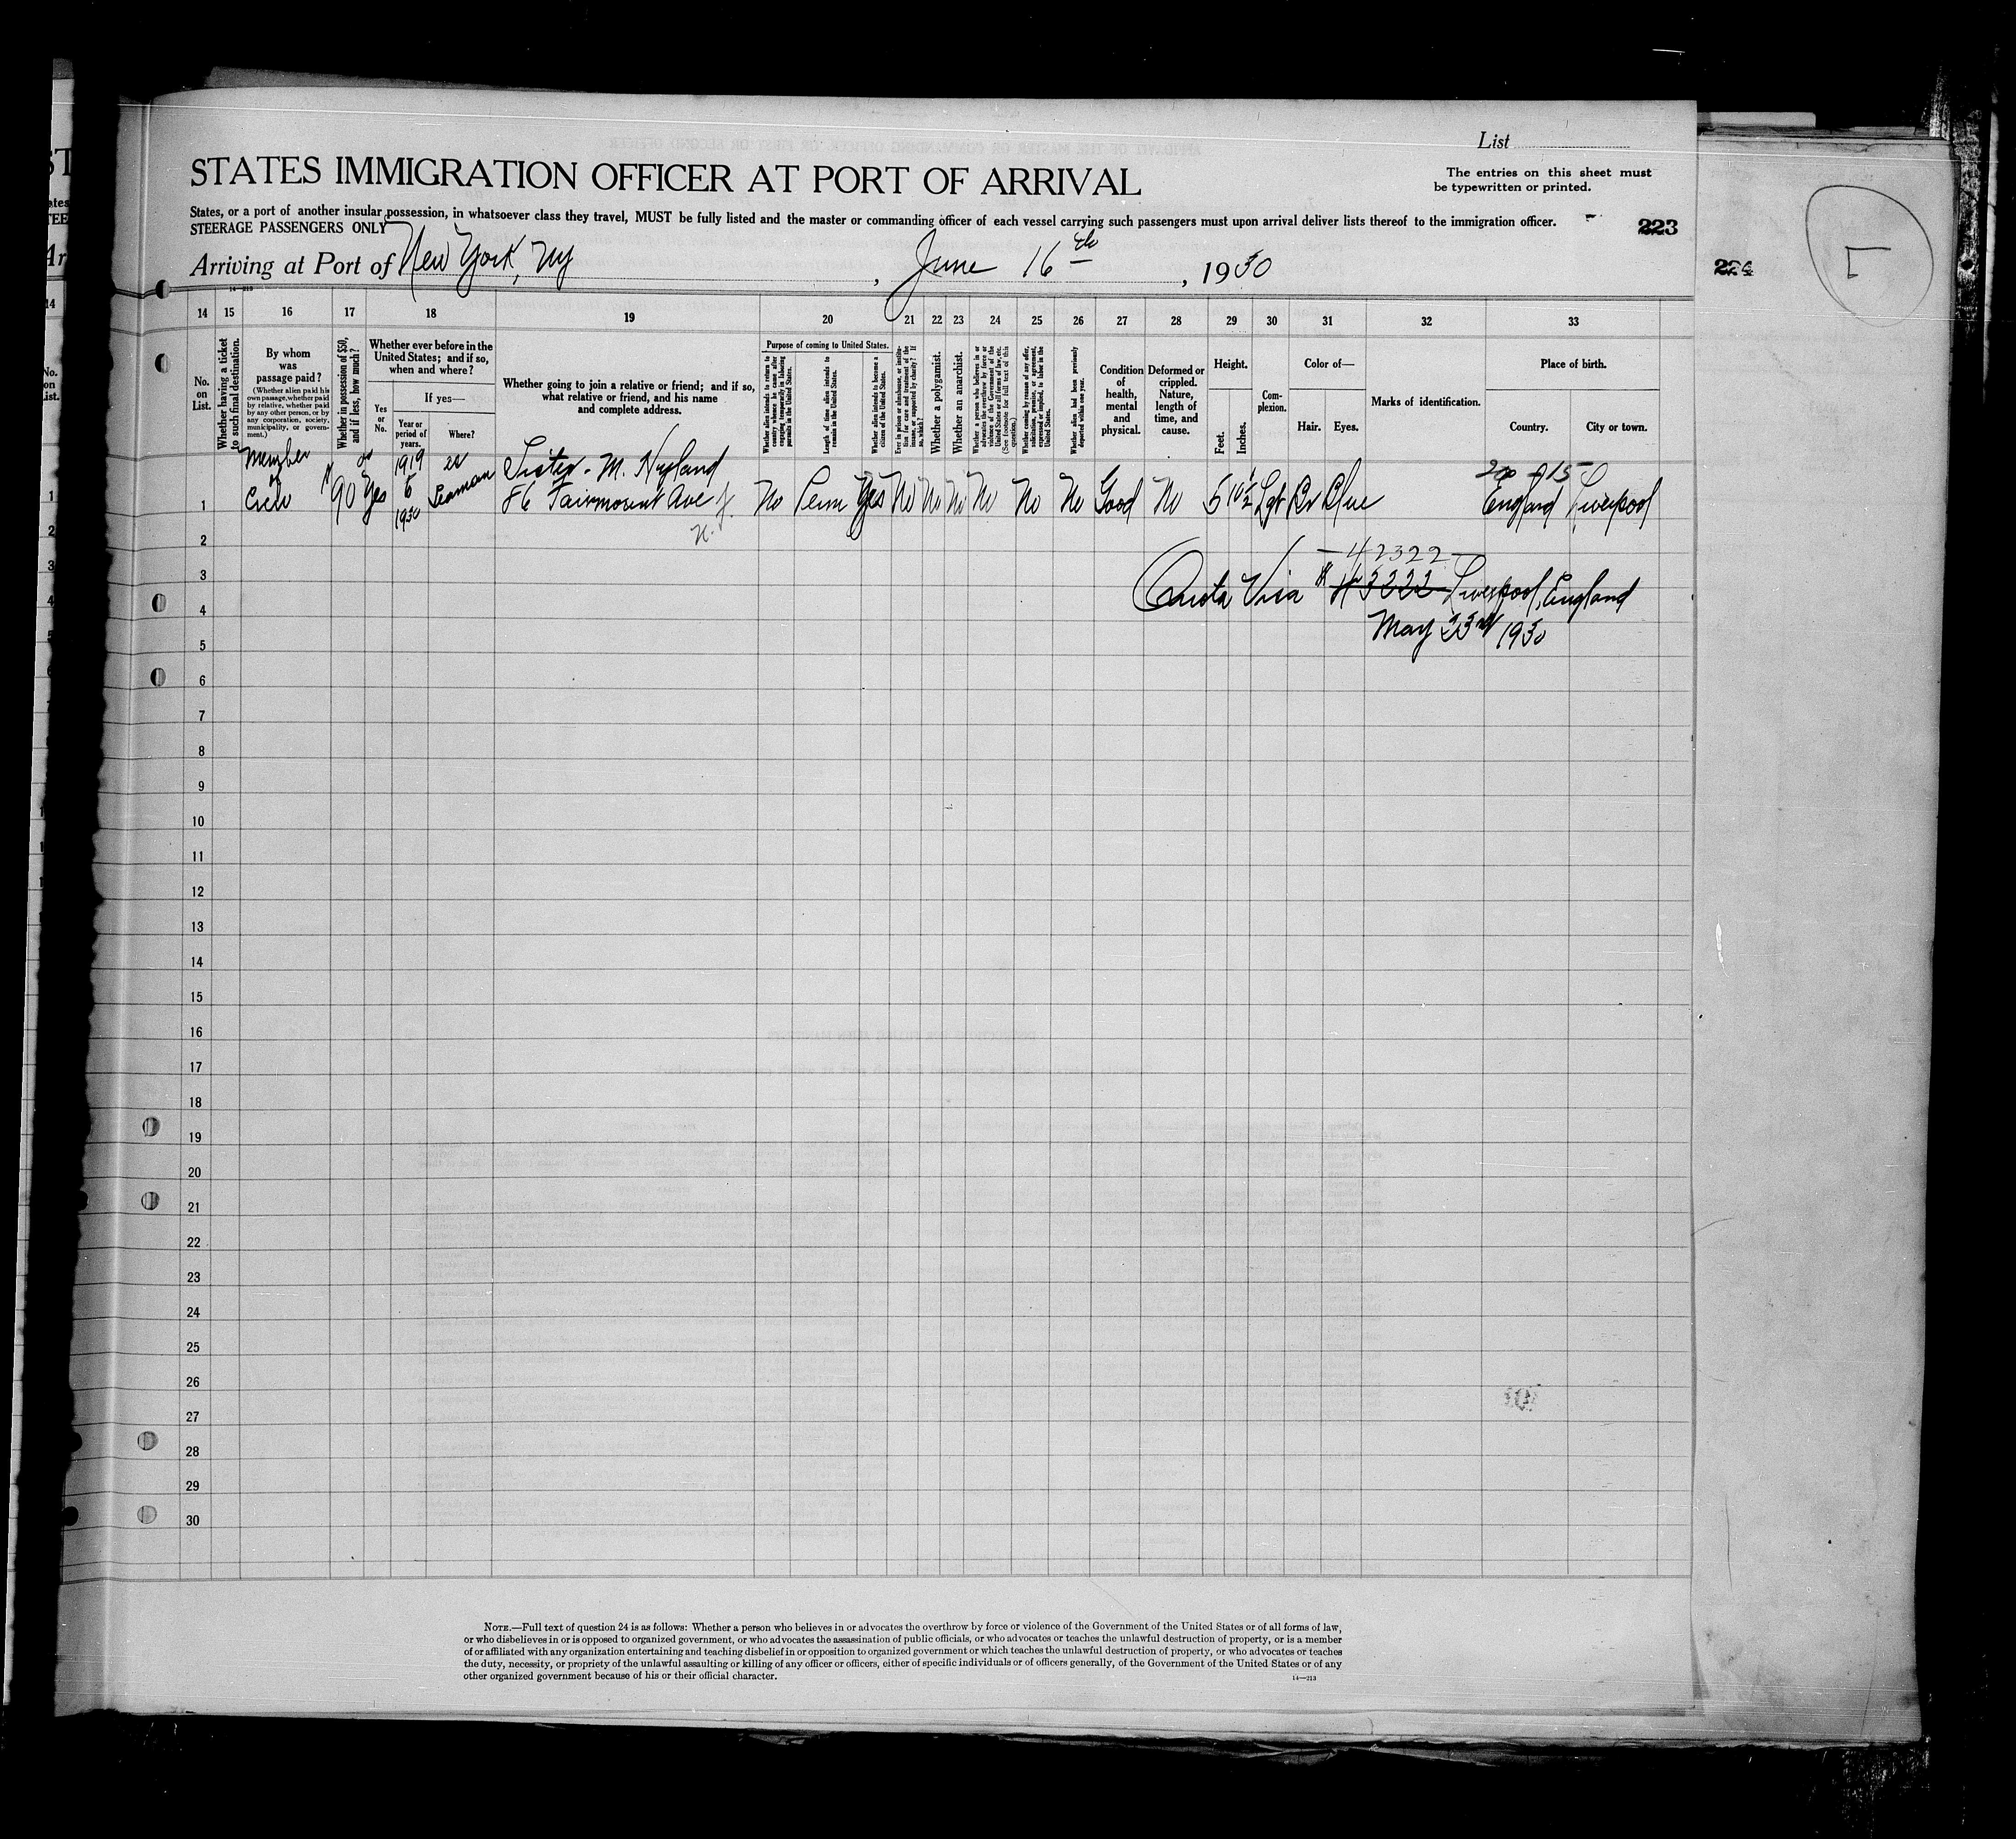 List
STATES IMMIGRATION OFFICER AT PORT OF ARRIVAL
The entries on this sheet must
be typewritten or printed.
States, or a port of another insular possession, in whatsoever class they travel, MUST be fully listed and the master or commanding officer of each vessel carrying such passengers must upon arrival deliver lists thereof to the immigration officer.
STEERAGE PASSENGERS ONLY
223
224
Arriving at Port of New York, NY, June 16th, 1930
14 15 16 17 18 19 20 21 22 23 24 25 26 27 28 29 30 31 32 33
No. on List.
Whether having a ticket to such final destination.
By whom was passage paid?
(Whether alien paid his own passage, whether paid by relative, whether paid by any other person, or by any corporation, society, municipality, or government.)
Whether in possession of $50, and if less, how much?
Whether ever before in the United States; and if so, when and where?
Yes or No.
If yes—
Year or period of years.
Where?
Whether going to join a relative or friend; and if so, what relative or friend, and his name and complete address.
Purpose of coming to United States.
Whether alien intends to return to country whence he came after engaging temporarily in laboring pursuits in the United States.
Length of time alien intends to remain in the United States.
Whether alien intends to become a citizen of the United States.
Ever in prison or almshouse, or institution for care and treatment of the insane, or supported by charity? If so, which?
Whether a polygamist.
Whether an anarchist.
Whether a person who believes in or advocates the overthrow by force or violence of the Government of the United States or all forms of law, etc. (See footnote for full text of this question.)
Whether coming by reason of any offer, solicitation, promise, or agreement, expressed or implied, to labor in the United States.
Whether alien had been previously deported within one year.
Condition of health, mental and physical.
Deformed or crippled. Nature, length of time, and cause.
Height.
Feet.
Inches.
Complexion.
Color of—
Hair.
Eyes.
Marks of identification.
Place of birth.
Country.
City or town.
Member 1919 as Sister - M. Hyland
1 Crew $90 Yes 5 Seaman 86 Fairmount Ave J. No Perm Yes No No No No No No Good No 5 10½ Lgt Br Blue England Liverpool
1930 N.
2
3
42322
4 Quota Visa # Liverpool, England
5 May 23rd 1930
6
7
8
9
10
11
12
13
14
15
16
17
18
19
20
21
22
23
24
25
26
27
28
29
30
NOTE.—Full text of question 24 is as follows: Whether a person who believes in or advocates the overthrow by force or violence of the Government of the United States or of all forms of law,
or who disbelieves in or is opposed to organized government, or who advocates the assassination of public officials, or who advocates or teaches the unlawful destruction of property, or is a member
of or affiliated with any organization entertaining and teaching disbelief in or opposition to organized government or which teaches the unlawful destruction of property, or who advocates or teaches
the duty, necessity, or propriety of the unlawful assaulting or killing of any officer or officers, either of specific individuals or of officers generally, of the Government of the United States or of any
other organized government because of his or their official character.
14—213